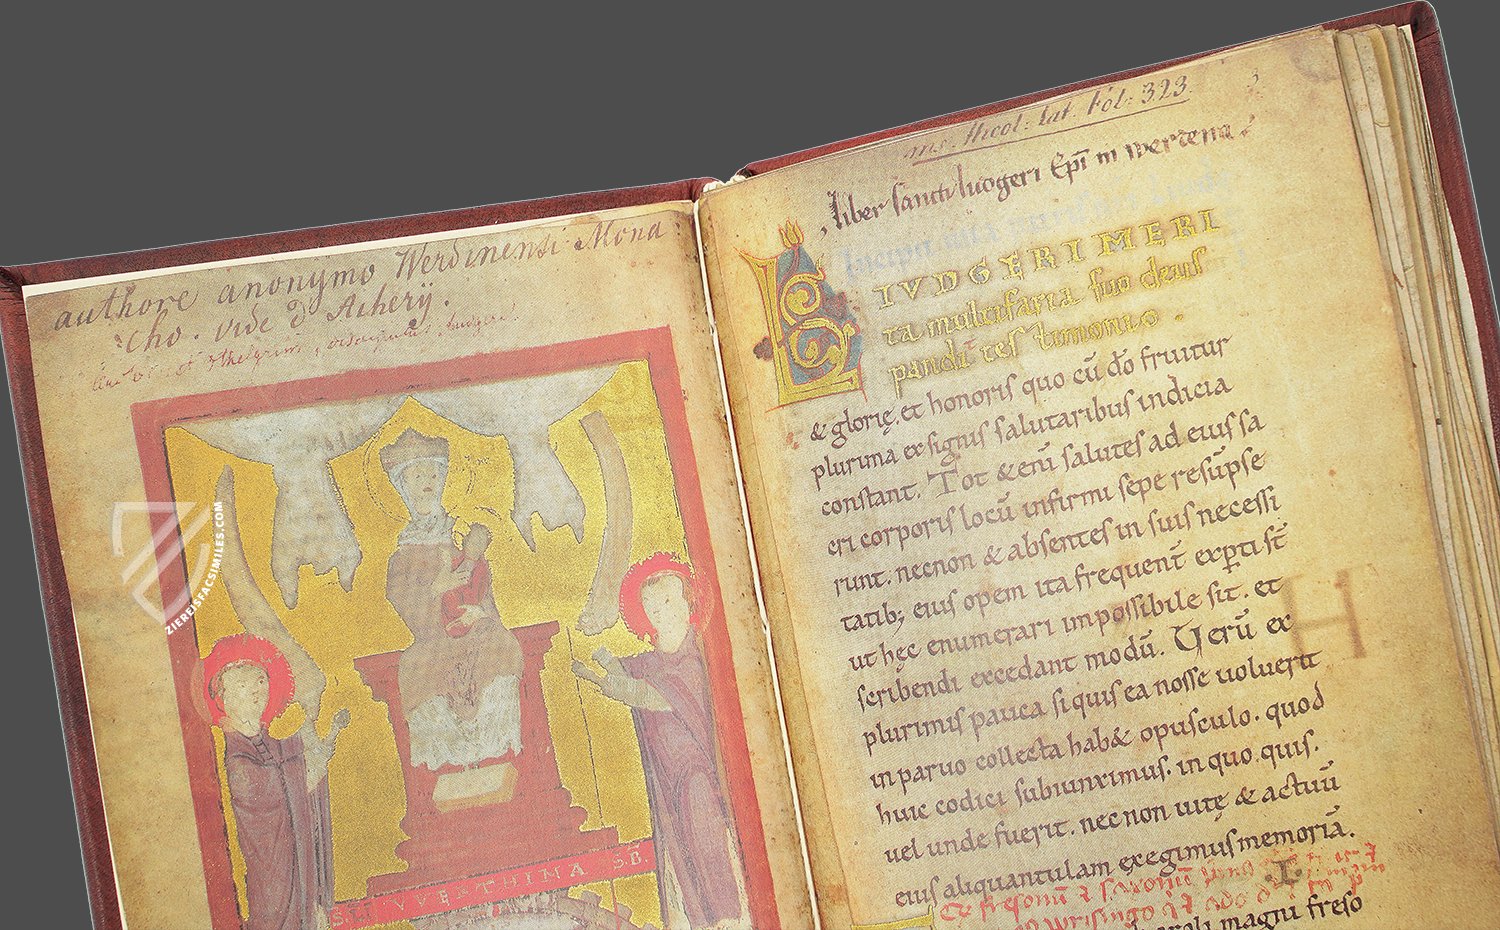 authore anonymo Werdinensi Mona:
cho. vide d'Acherÿ.
ms. Nicol: Lat. Fol: 323.
Liber sancti ludgeri Ep̄i in werdena
LIVDGERI MERI
ta multifaria suo deus
pandit tes timonio.
& glorię, et honoris quo cū d̄o fruitur
plurima ex signis salutaribus indicia
constant. Tot & enī salutes ad eius sa
cri corporis locū infirmi sepe resūpse
runt. necnon & absentes in suis necessi
tatib; eius opem ita frequent̄ exp̱ti st̄
ut hęc enumerari impossibile sit. et
scribendi excedant modū. Verū ex
plurimis pauca si quis ea nosse uoluerit
in paruo collecta hab& opusculo. quod
huic codici subiunximus. in quo. quis.
uel unde fuerit. necnon uitę & actuū
eius aliquantulam exegimus memoriā.
magni freso
S. IVVENTHIMA S.B.
ZIEREISFACSIMILES.COM